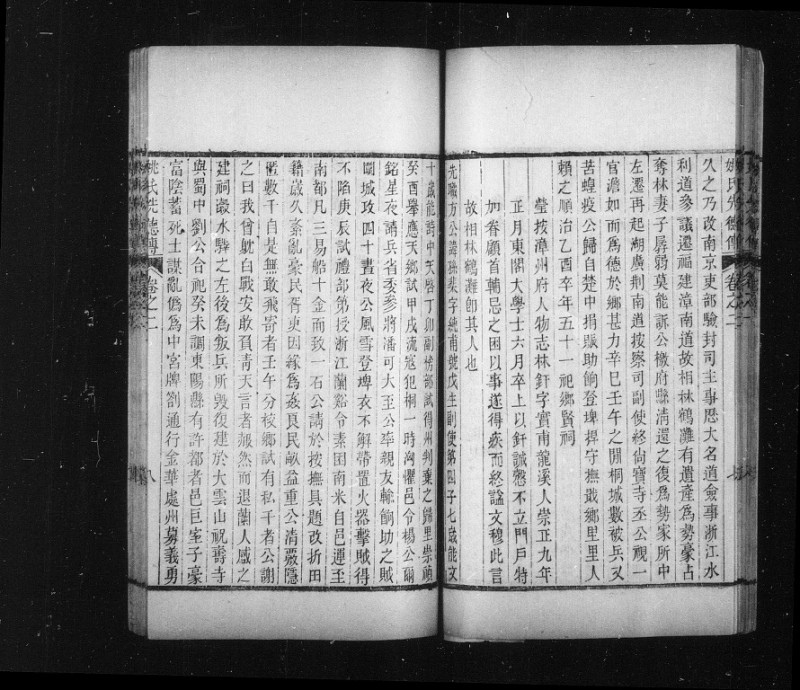 姚氏先德傳 卷之二
久之乃改南京吏部驗封司主事歷大名道僉事浙江水
利道參議遷福建漳南道故相林鶴灘有遺產爲勢豪占
奪林妻子孱弱莫能訴公檄府縣清還之復爲勢家所中
左遷再起湖廣荆南道按察司副使終尚寶寺丞公視一
官澹如而爲德於鄉甚力辛巳壬午之間桐城數被兵又
苦蝗疫公歸自楚中捐賑助餉登埤捍守撫戢鄉里里人
賴之順治乙酉卒年五十一祀鄉賢祠
瑩按漳州府人物志林釬字實甫龍溪人崇正九年
正月東閣大學士六月卒上以釬誠慤不立門戶特
加眷顧首輔忌之困以事遂得疾而終諡文穆此言
故相林鶴灘卽其人也
先職方公諱孫棐字純甫號戊生副使第四子七歲能文
十歲能詩中天啓丁卯副榜部試得州判棄之歸里崇禎
癸酉舉應天鄉試甲戌流寇犯桐一時洶懼邑令楊公爾
銘星夜請兵省委參將潘可大至公率親友輸餉助之賊
圍城攻四十晝夜公風雪登埤衣不解帶置火器擊賊得
不陷庚辰試禮部第授浙江蘭谿令素困南米自邑運至
南都凡三易船十金而致一石公請於按撫具題改折田
籍歲久紊亂豪民胥吏因緣爲姦良民畝益重公清覈隱
匿數千自是無敢飛寄者壬午分校鄉試有私干者公謝
之曰我曾躭白戰安敢負靑天言者赧然而退蘭人感之
建祠瀫水驛之左後爲叛兵所毀復建於大雲山祝壽寺
與蜀中劉公合祀癸未調東陽縣有許都者邑巨室子豪
富陰蓄死士謀亂僞爲中宮牌劄通行金華處州募義勇
姚氏先德傳 卷之二 八